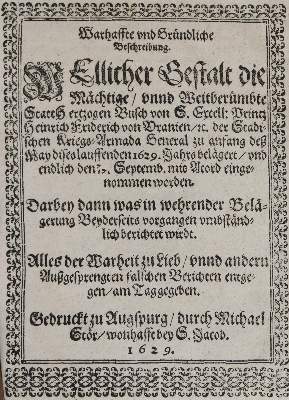 Warhaffte vnd Gründliche
Beschreibung.
WEllicher Gestalt die
Mächtige / vnnd Weitberümbte
Statt Hertzogen Busch von S. Excell: Printz
Heinrich Friderich von Vranien / ꝛc. der Stadi-
schen Kriegs-Armada General zu anfang deß
May dises lauffenden 1629. Jahrs belägert / vnd
endlich den Septemb. mit Acord einge-
nommen worden.
Darbey dann was in wehrender Belä-
gerung Beyderseits vorgangen vmbständ-
lich berichtet wirdt.
Alles der Warheit zu Lieb / vnnd andern
Außgesprengten falschen Berichten entge-
gen / am Tag gegeben.
Gedruckt zu Augspurg / durch Michael
Stör / wonhafft bey S. Jacob.
1629.